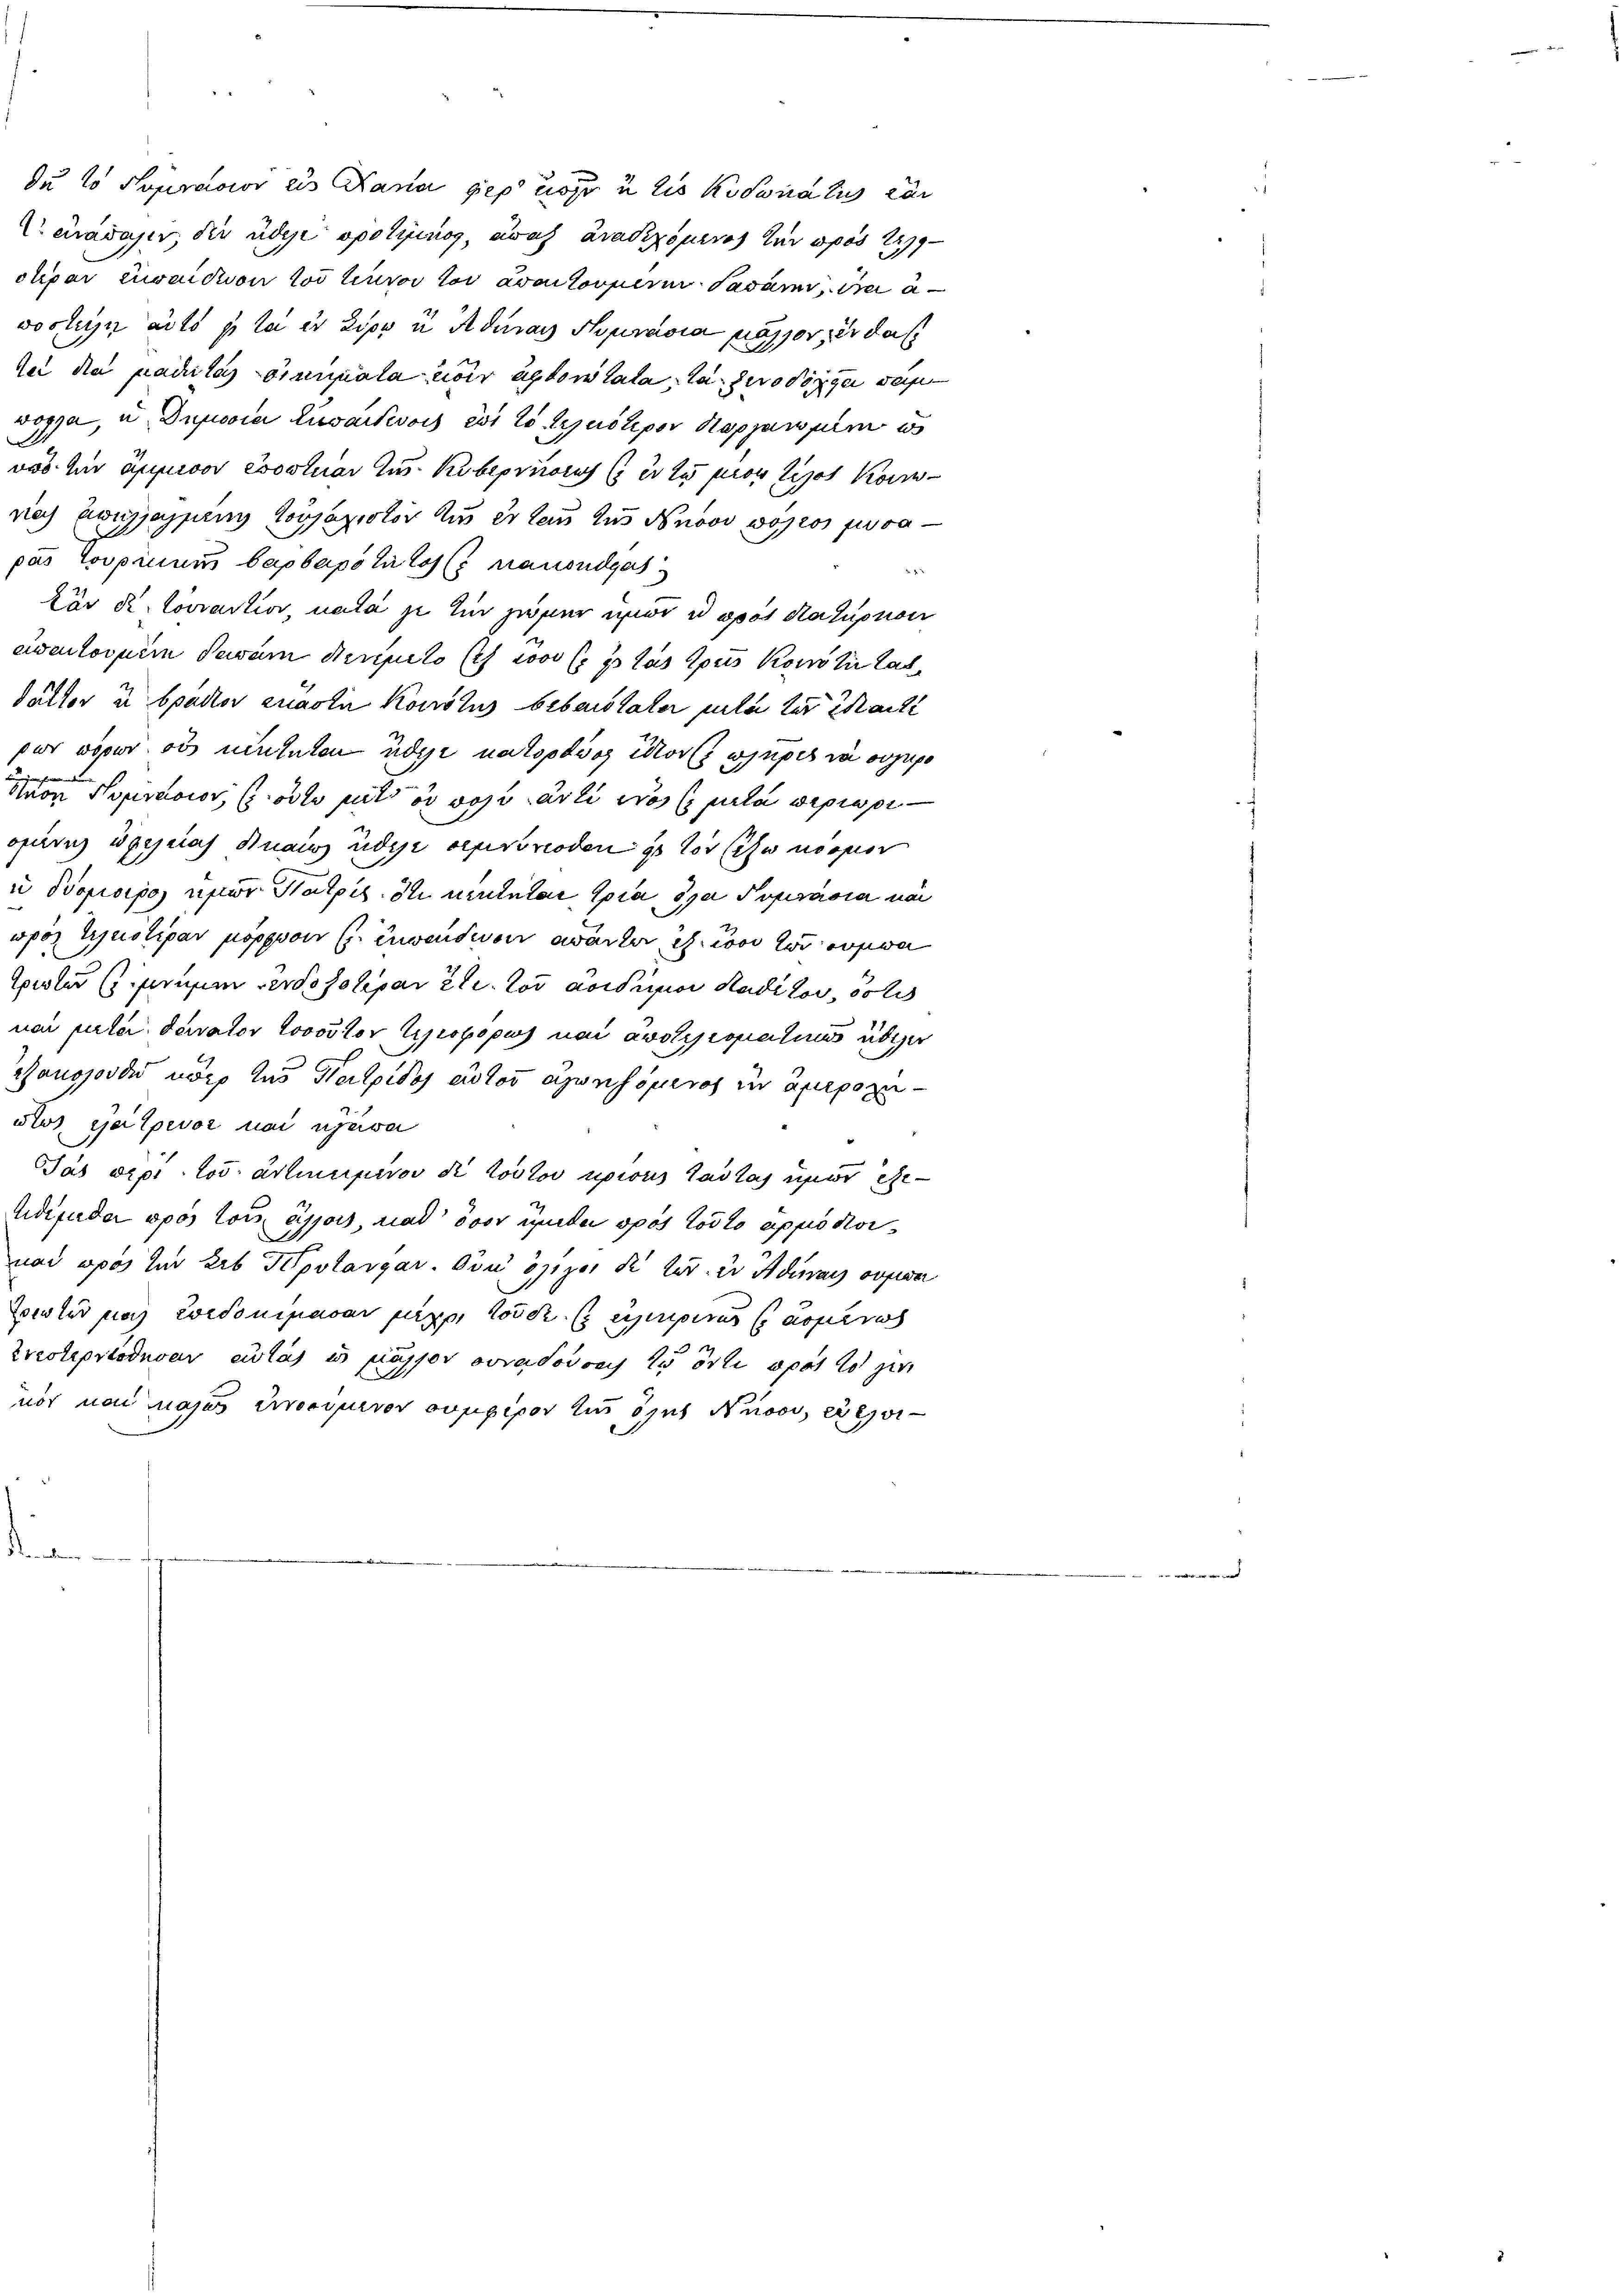 τὸ Γυμνάσιον εἰς Χανία φερ' εἰπεῖν ἢ εἰς Κυδωνιάτης ἐὰν
δὲν ἤθελε προτιμήσῃ, ἅπας ἀναδεχόμενος τὴν πρὸς τελει-
οτέραν ἐκπαίδευσιν τοῦ τέκνου του ἀπαιτουμένην δαπάνην, ἵνα ἀ-
ποστείλῃ αὐτὸ εἰς τὰ ἐν Σύρῳ ἢ Ἀθήναις Γυμνάσια μᾶλλον, ἔνθα
διὰ μαθητὰς οἰκήματα εἰσὶν ἀφθονώτατα, τὰ ξενοδοχεῖα πάμ-
πολλα, ἡ Δημοσία ἐκπαίδευσις ἐπὶ τὸ τελειότερον διωργανισμένη ὡς
ὑπὸ τὴν ἄμεσον ἐποπτείαν τῆς Κυβερνήσεως καὶ ἐν τῷ μέσῳ τέλος Κοινω-
νίας ἀπηλλαγμένης τοὐλάχιστον τῆς ἐν ταῖς τῆς Νήσου πόλεσι μυσα-
ρᾶς τουρκικῆς βαρβαρότητος καὶ κακοηθείας;
Ἐὰν δὲ τοὐναντίον, κατά γε τὴν γνώμην ἡμῶν ἡ πρὸς διατήρησιν
ἀπαιτουμένη δαπάνη διενέμετο ἐξ ἴσου καὶ εἰς τὰς τρεῖς Κοινότητας,
θᾶττον ἢ βράδιον ἑκάστη Κοινότης βεβαιότατα μετὰ τῶν
πόρων οὓς κέκτηται ἤθελε κατορθώσῃ ἴδιον καὶ πλῆρες νὰ συγκρο
Γυμνάσιον, καὶ οὕτω μετ' οὐ πολὺ ἀντὶ ἑνὸς καὶ μετὰ περιωρι-
σμένης ὠφελείας δικαίως ἤθελε σεμνύνεσθαι εἰς τὸν ἔξω κόσμον
ἡ δύσμοιρος ἡμῶν Πατρίς, ὅτι κέκτηται τρία ὅλα Γυμνάσια καὶ
πρὸς τελειοτέραν μόρφωσιν καὶ ἐκπαίδευσιν ἁπάντων ἐξ ἴσου τῶν συμπα
τριωτῶν καὶ μνήμην ἐνδοξοτέραν ἔτι τοῦ ἀοιδίμου Διαθέτου, ὅστις
καὶ μετὰ θάνατον τοσοῦτον τελεσφόρως καὶ ἀποτελεσματικῶς ἤθελεν
ἐξακολουθῇ ὑπὲρ τῆς Πατρίδος αὐτοῦ ἀγωνιζόμενος ἣν ἀμερολή-
πτως ἐλάτρευσε καὶ ἠγάπα
Τὰς περὶ τοῦ ἀντικειμένου δὲ τούτου κρίσεις ταύτας ἡμῶν ἐξε-
θέμεθα πρὸς τοὺς ἄλλους, καθ' ὅσον ᾠήθημεν πρὸς τοῦτο ἁρμόδιον
καὶ πρὸς τὴν Σεβ Πρυτανείαν. Οὐκ ὀλίγοι δὲ τῶν ἐν Ἀθήναις συμπα
τριωτῶν μας ἐπεδοκίμασαν μέχρι τοῦδε καὶ εἰλικρινῶς καὶ ἀσμένως
ἐνεστερνίσθησαν αὐτὰς ὡς μᾶλλον συναδούσας τῷ ὄντι πρὸς τὸ γενι
κὸν καὶ καλῶς ἐννοούμενον συμφέρον τῆς ὅλης Νήσου,